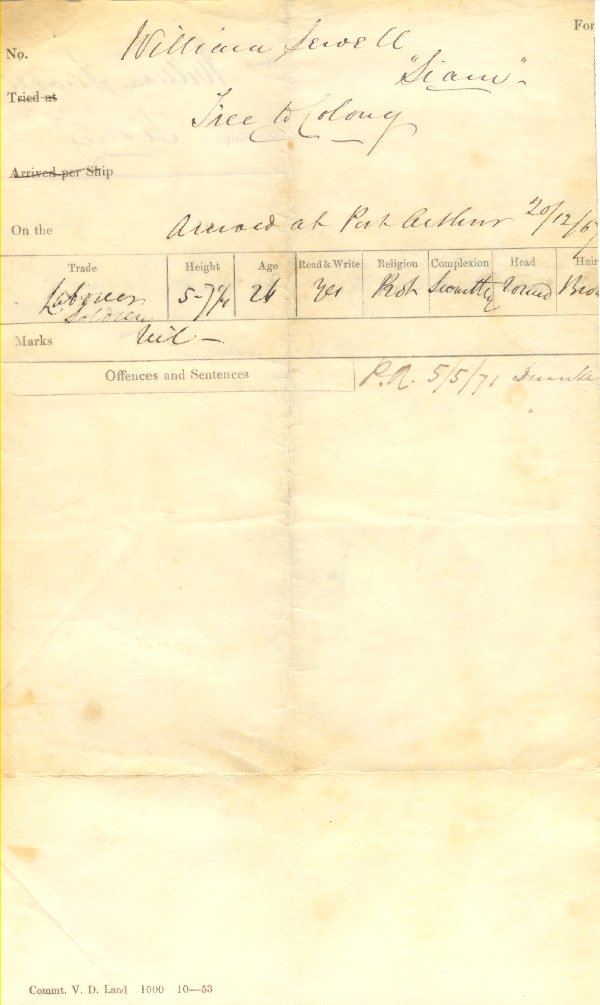 For
No. William Sewell
"Siam"
Tried at
Free to Colony
Arrived per Ship
On the Arrived at Port Arthur 20/12/6
Trade Height Age Read & Write Religion Complexion Head Hair
Labourer 5-7¼ 26 Yes Swarthy round Brow
Soldier
Marks Nil –
Offences and Sentences P.A. 5/5/71
Commt. V. D. Land 1000 10—53